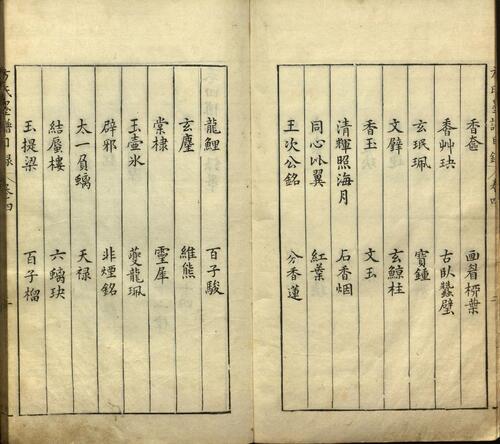 香奩 画眉桺葉
香艸玦 古臥蠶璧
玄珉珮 寶鍾
文璧 玄鯨柱
香玉 文玉
清輝照海月 石香烟
同心比翼 紅葉
王次公銘 分香蓮
龍鯉 百子駿
玄麈 維熊
棠棣 靈犀
玉壺氷 夔龍珮
辟邪 非煙銘
太一負螭 天禄
結蜃樓 六螭玦
玉提梁 百子榴
方氏墨譜目録 卷四